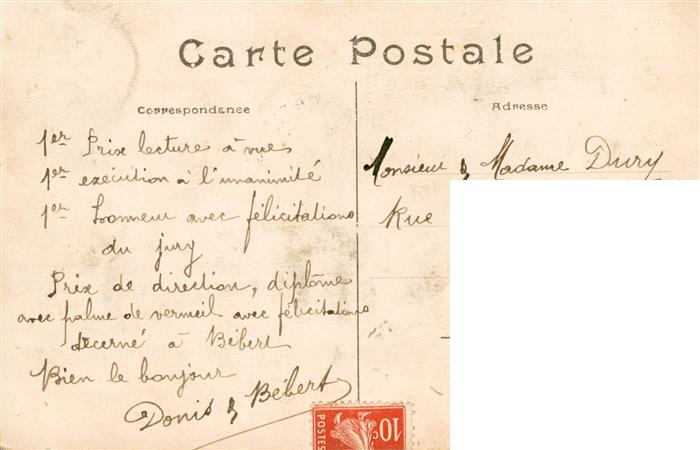 Carte Postale
Correspondance
1er Prix lecture à vue
1er exécution à l'unanimité
1er honneur avec félicitations
du jury
Prix de direction, diplôme
avec palme de vermeil avec félicitations
décerné à Bébert
Bien le bonjour
Donis & Bébert
Adresse
Monsieur & Madame Dury
Rue
10c
POSTES